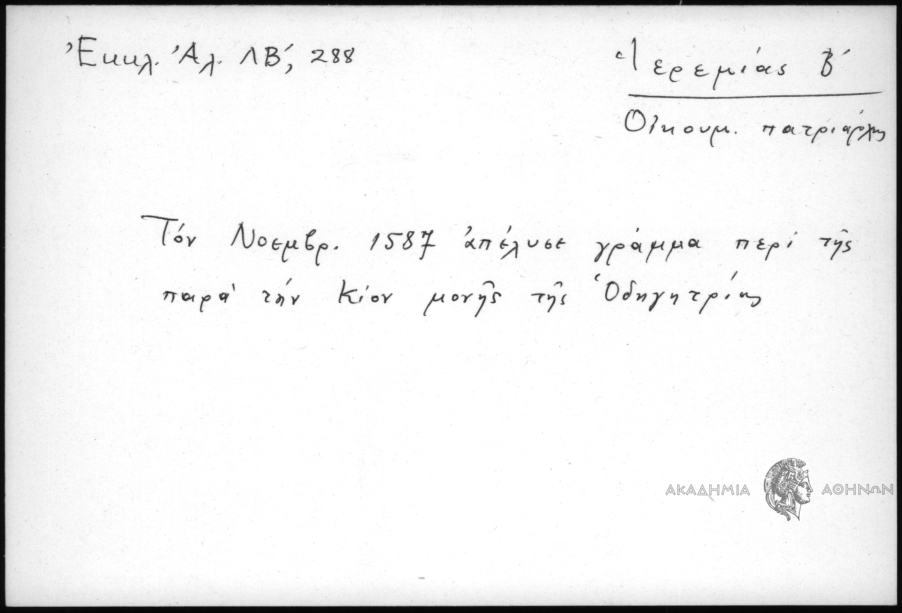 Ἐκκλ. Ἀλ. ΛΒ΄, 288
Ἱερεμίας Β΄
Οἰκουμ. πατριάρχης
Τόν Νοεμβρ. 1587 ἀπέλυσε γράμμα περί τῆς
παρά τήν Κίον μονῆς τῆς Ὁδηγητρίας
ΑΚΑΔΗΜΙΑ ΑΘΗΝΩΝ